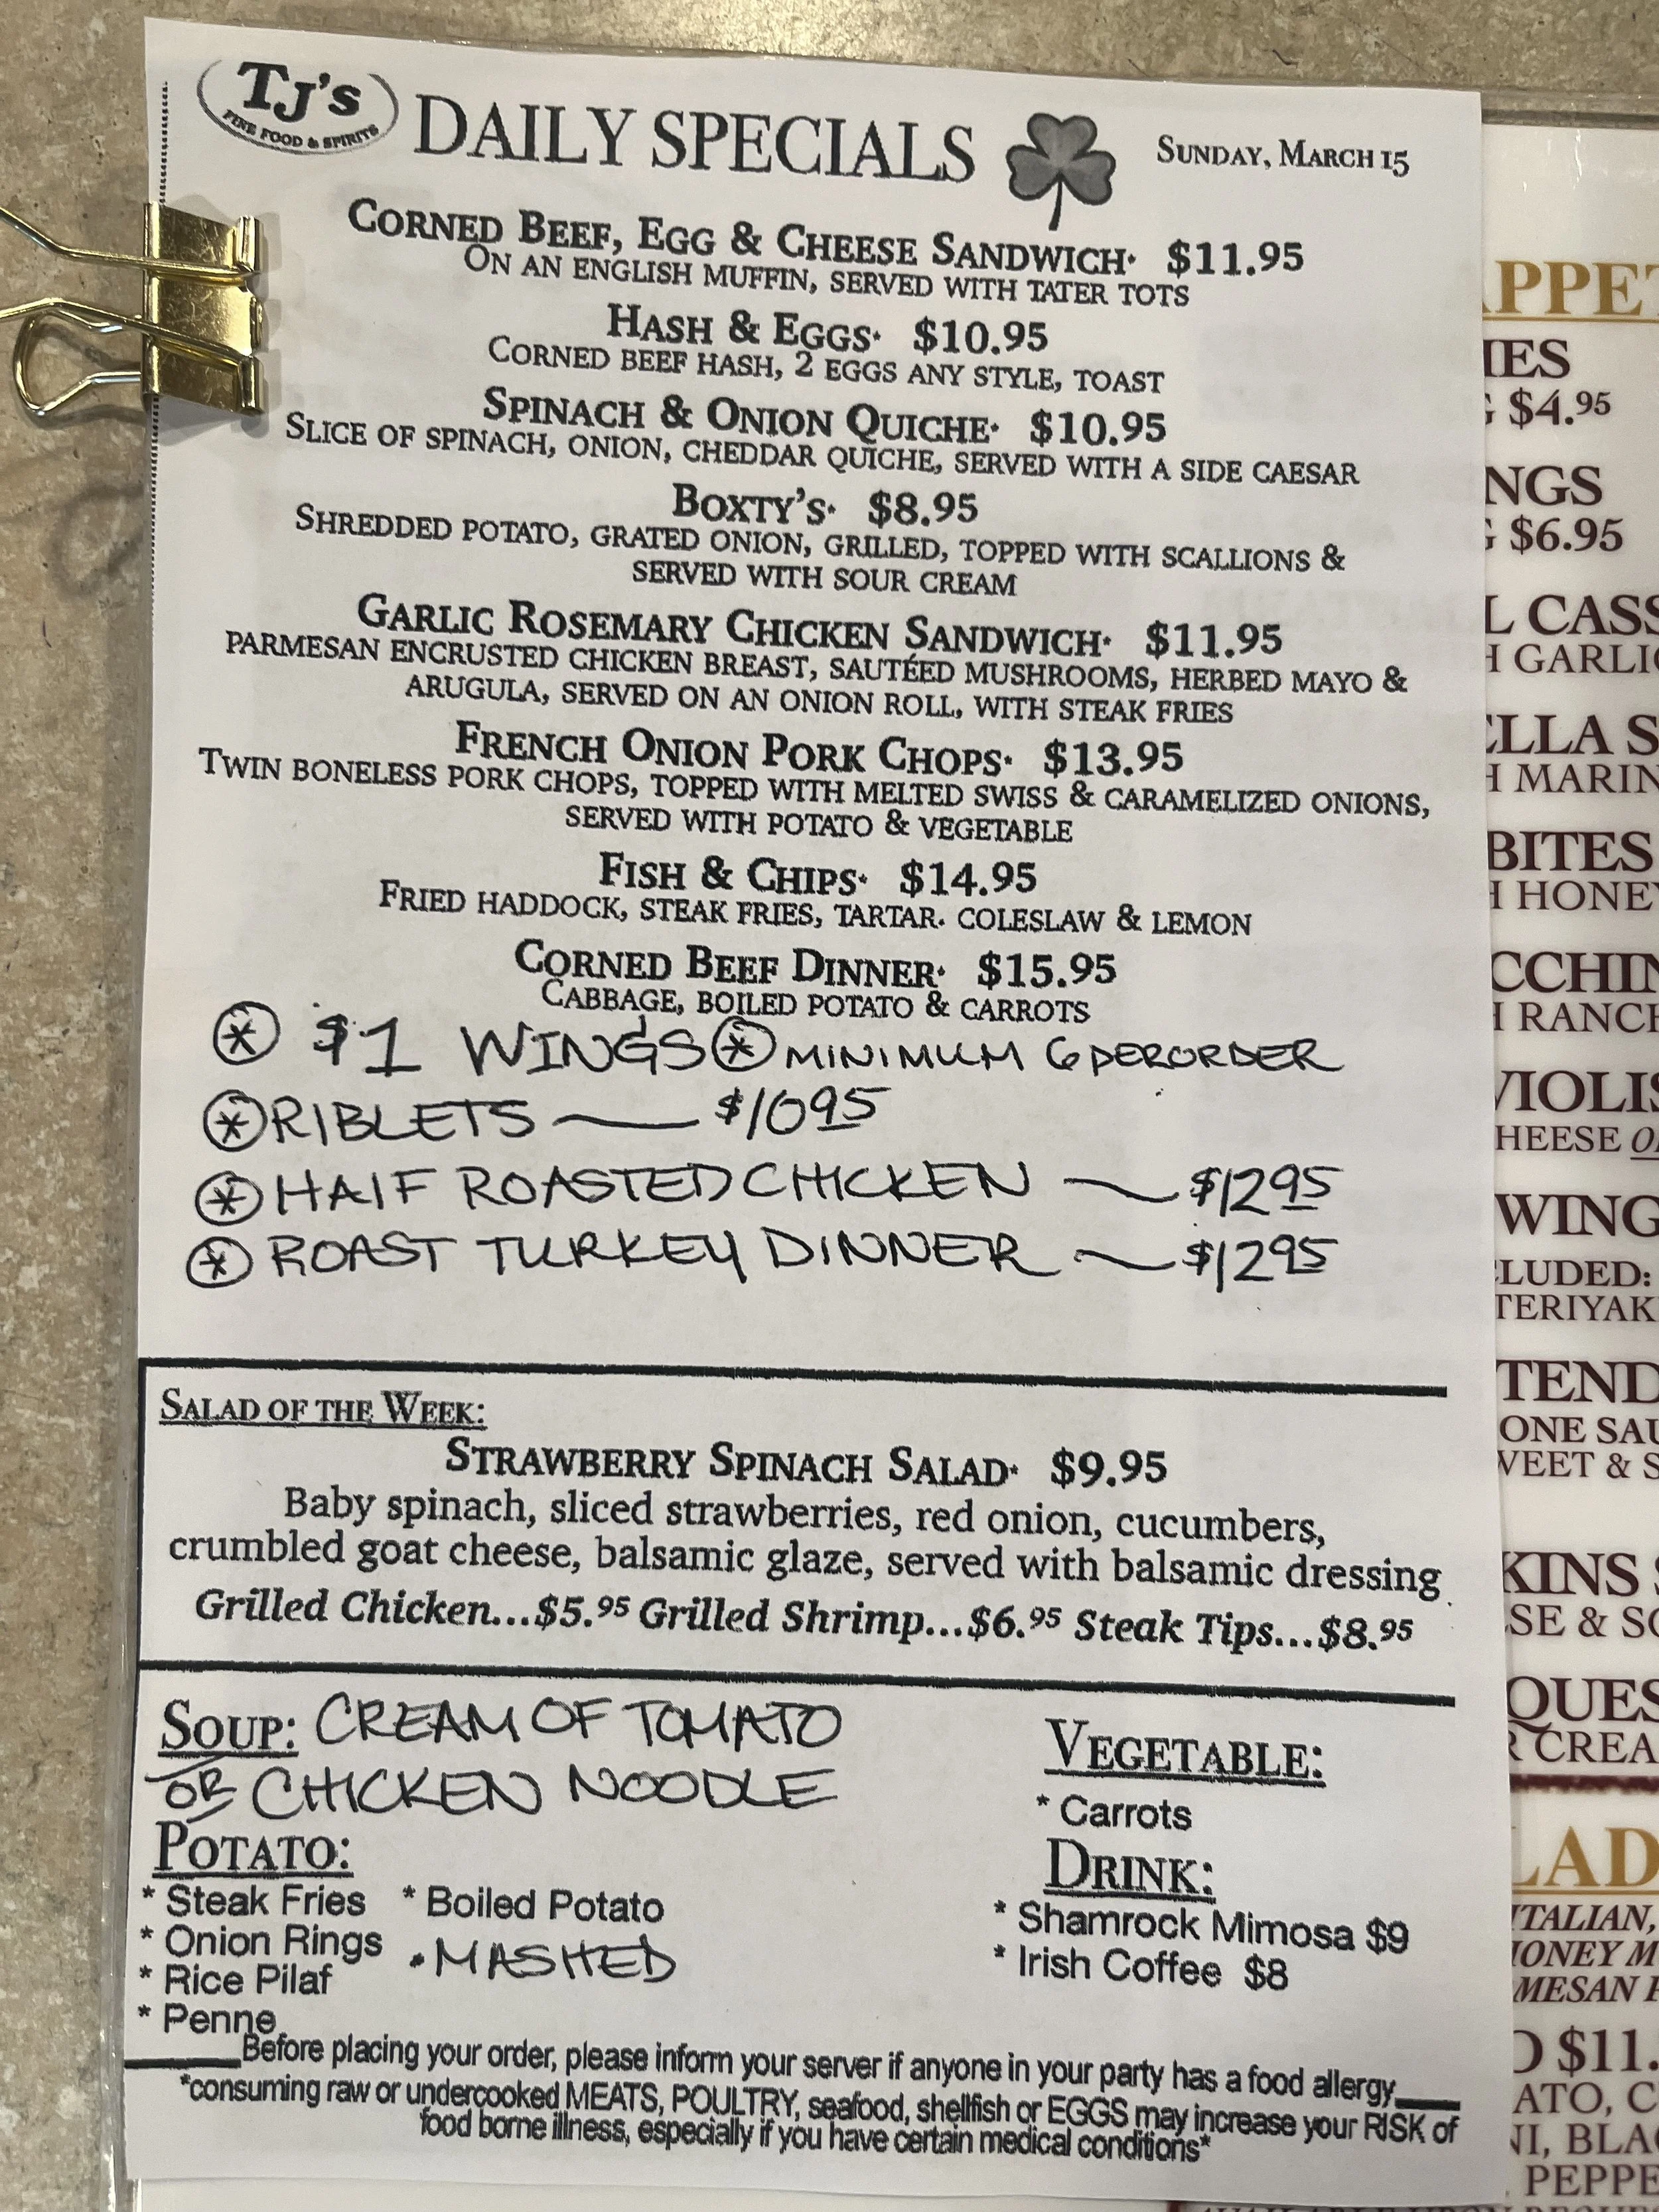 TJ's
FINE FOOD & SPIRITS
DAILY SPECIALS
SUNDAY, MARCH 15
CORNED BEEF, EGG & CHEESE SANDWICH· $11.95
ON AN ENGLISH MUFFIN, SERVED WITH TATER TOTS
HASH & EGGS· $10.95
CORNED BEEF HASH, 2 EGGS ANY STYLE, TOAST
SPINACH & ONION QUICHE· $10.95
SLICE OF SPINACH, ONION, CHEDDAR QUICHE, SERVED WITH A SIDE CAESAR
BOXTY'S· $8.95
SHREDDED POTATO, GRATED ONION, GRILLED, TOPPED WITH SCALLIONS &
SERVED WITH SOUR CREAM
GARLIC ROSEMARY CHICKEN SANDWICH· $11.95
PARMESAN ENCRUSTED CHICKEN BREAST, SAUTÉED MUSHROOMS, HERBED MAYO &
ARUGULA, SERVED ON AN ONION ROLL, WITH STEAK FRIES
FRENCH ONION PORK CHOPS· $13.95
TWIN BONELESS PORK CHOPS, TOPPED WITH MELTED SWISS & CARAMELIZED ONIONS,
SERVED WITH POTATO & VEGETABLE
FISH & CHIPS· $14.95
FRIED HADDOCK, STEAK FRIES, TARTAR. COLESLAW & LEMON
CORNED BEEF DINNER· $15.95
CABBAGE, BOILED POTATO & CARROTS
* $1 WINGS * MINIMUM 6 PER ORDER
* RIBLETS — $10 95
* HALF ROASTED CHICKEN — $12 95
* ROAST TURKEY DINNER — $12 95
SALAD OF THE WEEK:
STRAWBERRY SPINACH SALAD· $9.95
Baby spinach, sliced strawberries, red onion, cucumbers,
crumbled goat cheese, balsamic glaze, served with balsamic dressing
Grilled Chicken...$5.95 Grilled Shrimp...$6.95 Steak Tips...$8.95
SOUP: CREAM OF TOMATO
OR CHICKEN NOODLE
POTATO:
* Steak Fries * Boiled Potato
* Onion Rings · MASHED
* Rice Pilaf
* Penne
VEGETABLE:
* Carrots
DRINK:
* Shamrock Mimosa $9
* Irish Coffee $8
Before placing your order, please inform your server if anyone in your party has a food allergy
*consuming raw or undercooked MEATS, POULTRY, seafood, shellfish or EGGS may increase your RISK of
food borne illness, especially if you have certain medical conditions*
$4.95
$6.95
GARLIC
BITES
HONEY
RANCH
WING
TERIYAK
ONE SAU
$11.